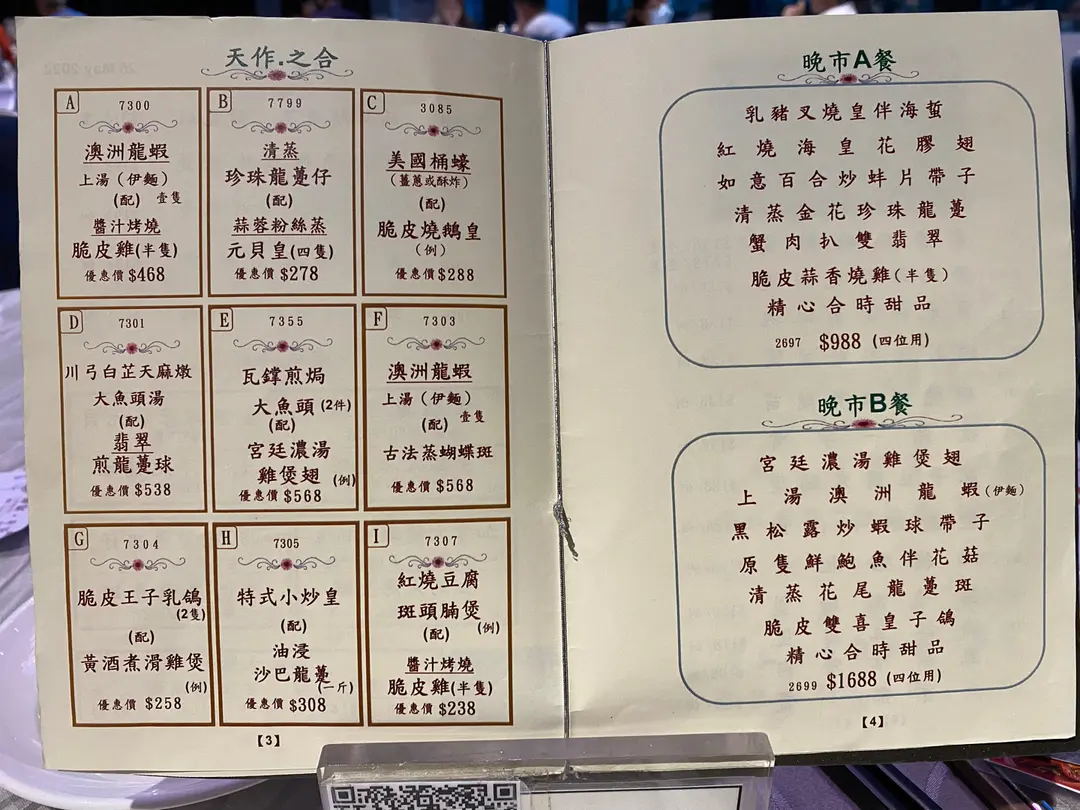 天作.之合
A
7300
澳洲龍蝦
上湯（伊麵）
(配) 壹隻
醬汁烤燒
脆皮雞(半隻)
優惠價 $468
B
7799
清蒸
珍珠龍躉仔
(配)
蒜蓉粉絲蒸
元貝皇(四隻)
優惠價 $278
C
3085
美國桶蠔
(薑蔥或酥炸)
(配)
脆皮燒鵝皇
(例)
優惠價 $288
D
7301
川弓白芷天麻燉
大魚頭湯
(配)
翡翠
煎龍躉球
優惠價 $538
E
7355
瓦鐣煎焗
大魚頭 (2件)
(配)
宮廷濃湯
雞煲翅 (例)
優惠價 $568
F
7303
澳洲龍蝦
上湯（伊麵）
(配) 壹隻
古法蒸蝴蝶斑
優惠價 $568
G
7304
脆皮王子乳鴿
(2隻)
(配)
黃酒煮滑雞煲
(例)
優惠價 $258
H
7305
特式小炒皇
(配)
油浸
沙巴龍躉
(一斤)
優惠價 $308
I
7307
紅燒豆腐
斑頭腩煲
(配) (例)
醬汁烤燒
脆皮雞(半隻)
優惠價 $238
【3】
晚市A餐
乳豬叉燒皇伴海蜇
紅燒海皇花膠翅
如意百合炒蚌片帶子
清蒸金花珍珠龍躉
蟹肉扒雙翡翠
脆皮蒜香燒雞(半隻)
精心合時甜品
2697 $988 (四位用)
晚市B餐
宮廷濃湯雞煲翅
上湯澳洲龍蝦(伊麵)
黑松露炒蝦球帶子
原隻鮮鮑魚伴花菇
清蒸花尾龍躉斑
脆皮雙喜皇子鴿
精心合時甜品
2699 $1688 (四位用)
【4】